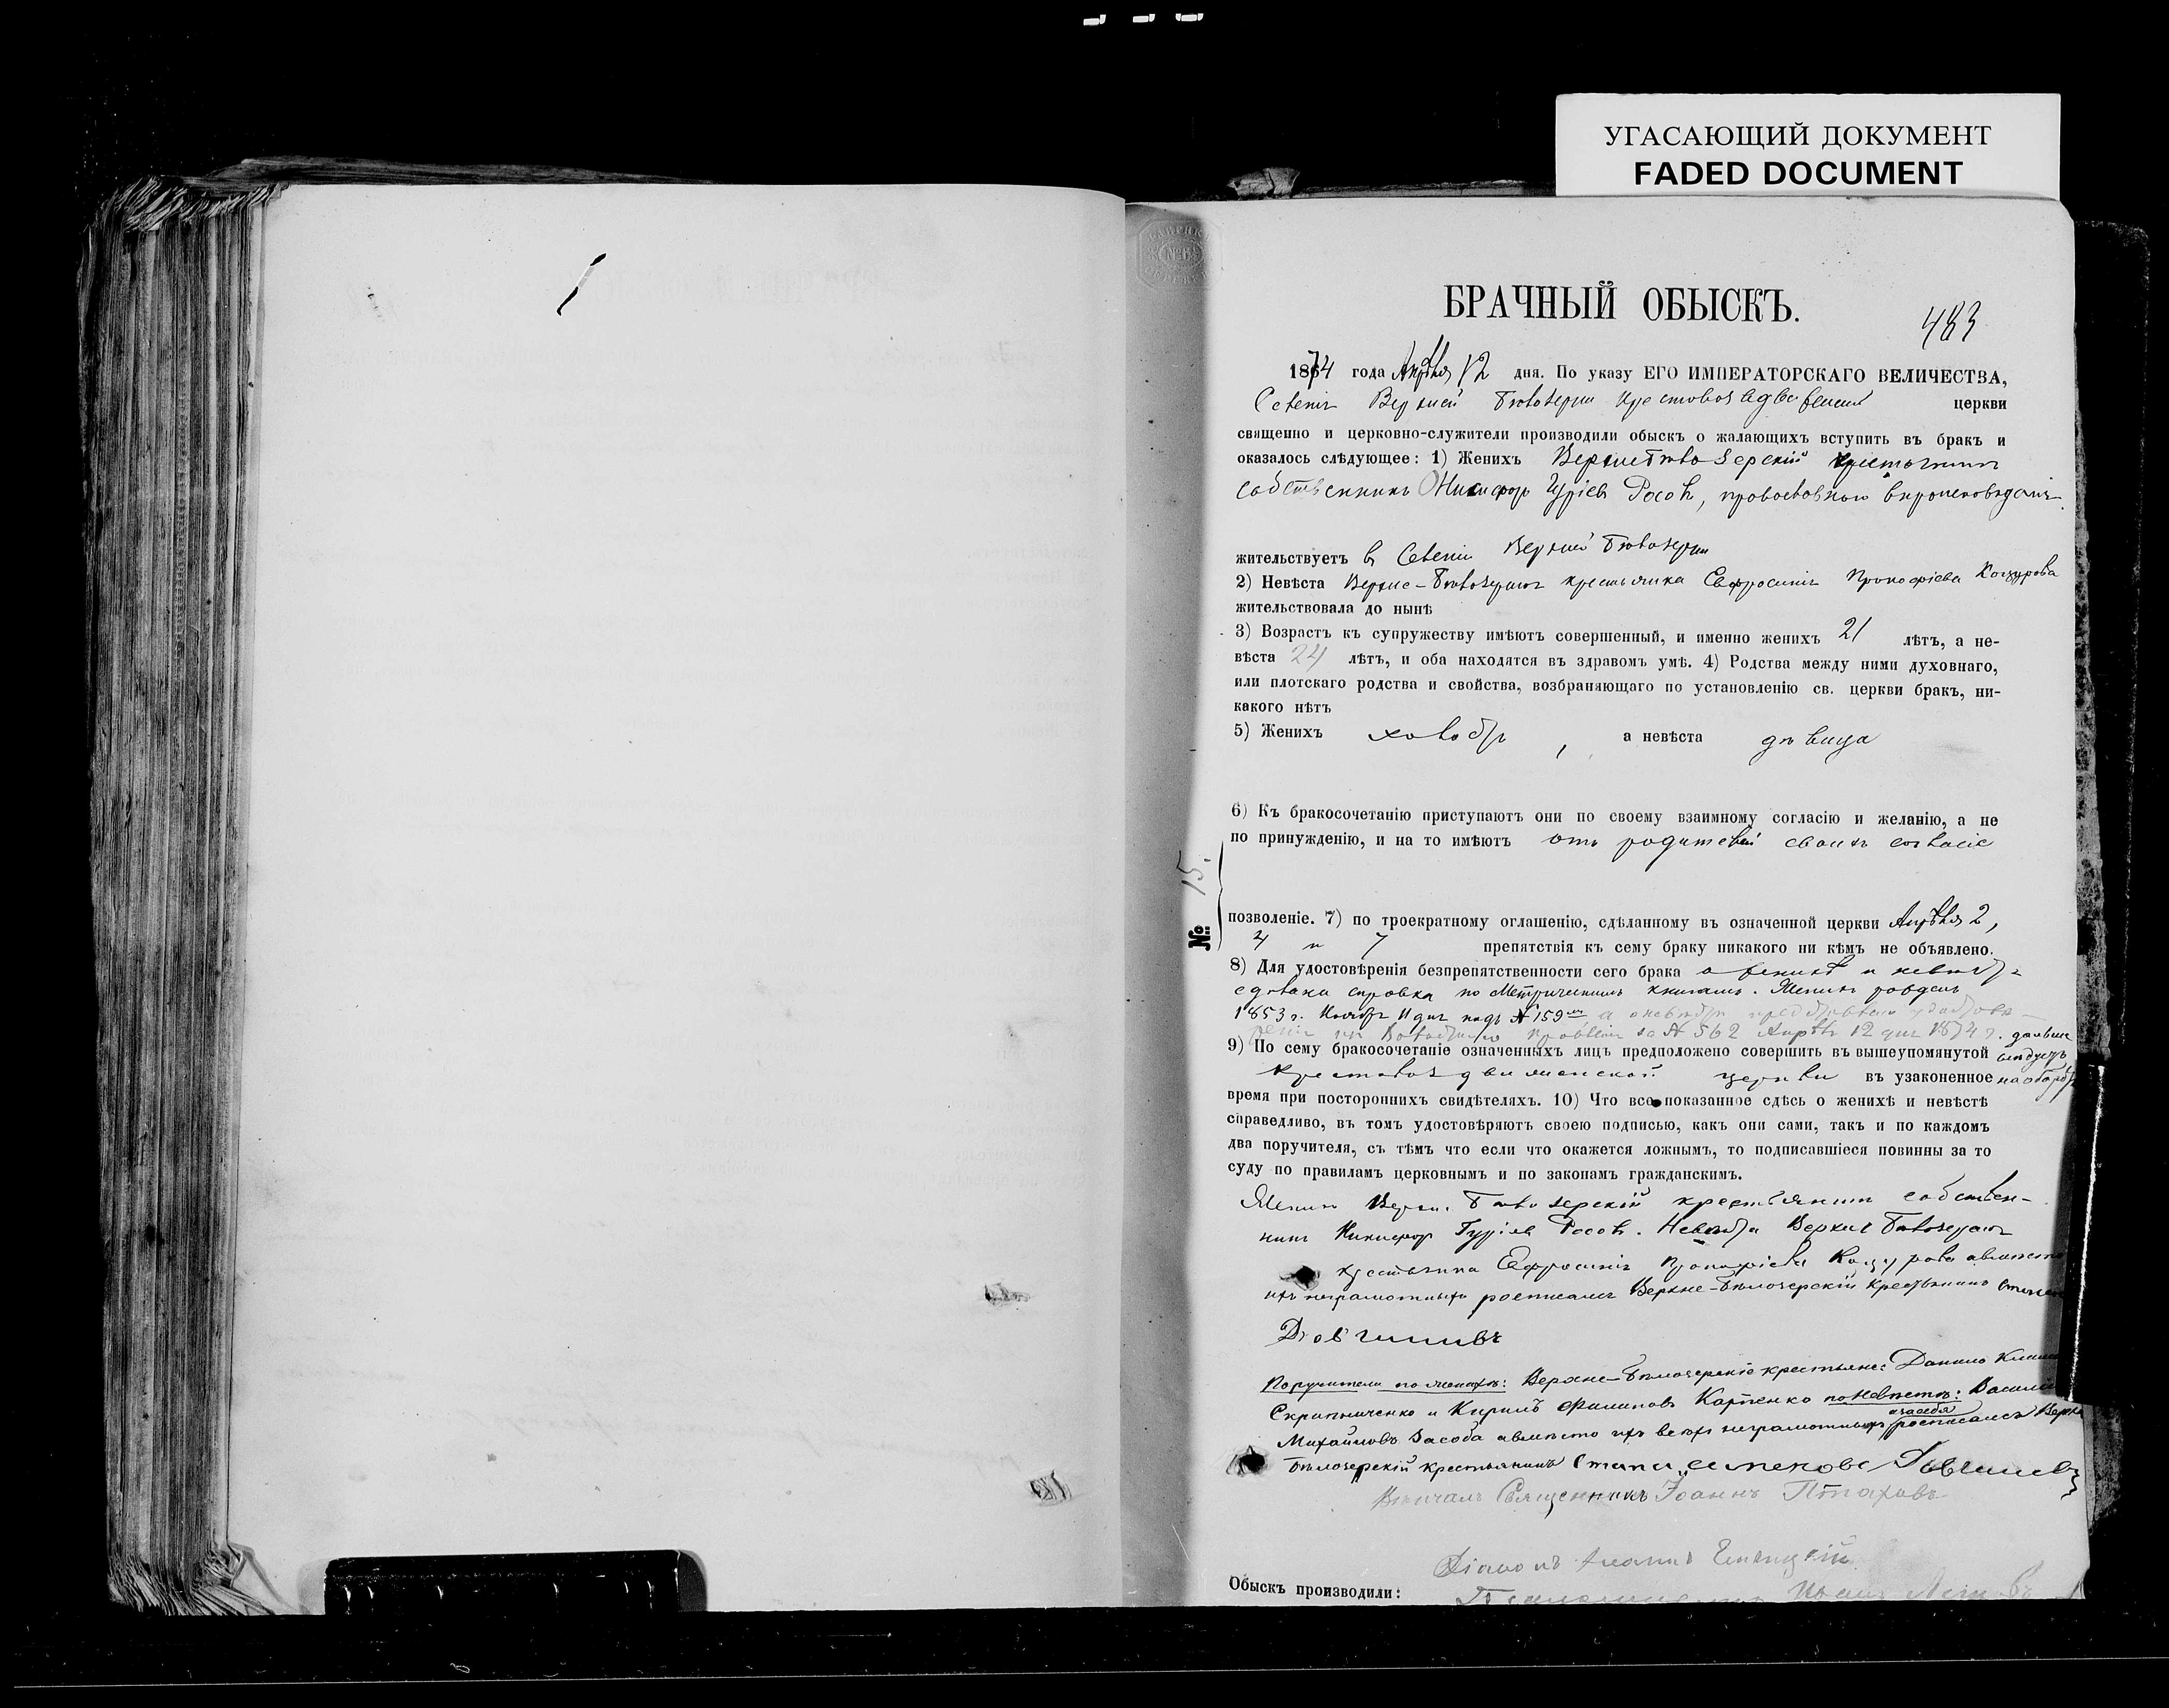 УГАСАЮЩИЙ ДОКУМЕНТ
FADED DOCUMENT
БРАЧНЫЙ ОБЫСКЪ.
483
1874 года Апрѣля 12 дня. По указу ЕГО ИМПЕРАТОРСКАГО ВЕЛИЧЕСТВА,
Селенія Верхней Бѣлозерки Крестовоздвиженской церкви
священно и церковно-служители производили обыскъ о жалающихъ вступить въ бракъ и
оказалось слѣдующее: 1) Женихъ Верхнебѣлозерскій крестьянинъ
собственникъ Никифоръ Гуріевъ Росовъ, православнаго вѣроисповѣданія
жительствуетъ въ Селеніи Верхней Бѣлозерки
2) Невѣста Верхне-Бѣлозерская крестьянка Евфросинія Прокофіева Коцурова
жительствовала до нынѣ
3) Возрастъ къ супружеству имѣютъ совершенный, и именно женихъ 21 лѣтъ, а не-
вѣста 24 лѣтъ, и оба находятся въ здравомъ умѣ. 4) Родства между ними духовнаго,
или плотскаго родства и свойства, возбраняющаго по установленію св. церкви бракъ, ни-
какого нѣтъ
5) Женихъ холостъ, а невѣста дѣвица
6) Къ бракосочетанію приступаютъ они по своему взаимному согласію и желанію, а не
по принужденію, и на то имѣютъ отъ родителей своихъ согласіе
№ 15.
позволеніе. 7) по троекратному оглашенію, сдѣланному въ означенной церкви Апрѣля 2,
4 и 7 препятствія къ сему браку никакого ни кѣмъ не объявлено.
8) Для удостовѣренія безпрепятственности сего брака о женихѣ и невѣстѣ
сдѣлана справка по Метрическимъ книгамъ. Женихъ рожденъ
1853 г. Ноября 11 дня подъ № 159 а о невѣстѣ представлено удостовѣ-
реніе Волостнаго Правленія за № 562 Апрѣля 12 дня 1874 г. дальше
9) По сему бракосочетаніе означенныхъ лицъ предположено совершить въ вышеупомянутой слѣдуетъ
Крестовоздвиженской церкви въ узаконенное на оборотѣ
время при постороннихъ свидѣтеляхъ. 10) Что все показанное сдѣсь о женихѣ и невѣстѣ
справедливо, въ томъ удостовѣряютъ своею подписью, какъ они сами, такъ и по каждомъ
два поручителя, съ тѣмъ что если что окажется ложнымъ, то подписавшіеся повинны за то
суду по правиламъ церковнымъ и по законамъ гражданскимъ.
Женихъ Верхн. Бѣлозерскій крестьянинъ собствен-
никъ Никифоръ Гуріевъ Росовъ. Невѣста Верхне Бѣлозерская
крестьянка Евфросинія Прокофіева Коцурова а вмѣсто
ихъ неграмотныхъ росписался Верхне-Бѣлозерскій крестьянинъ
Довгишевъ
Поручители по женихѣ: Верхне-Бѣлозерскіе крестьяне: Данило
Скрипниченко и Кирилъ Филиповъ Карпенко по невѣстѣ: Василій
Михайловъ Засоба а вмѣсто ихъ всѣхъ неграмотныхъ и за себя росписался Верхне
Бѣлозерскій крестьянинъ
Вѣнчалъ Священникъ Іоаннъ Птаховъ
Діаконъ Іоаннъ
Обыскъ производили: